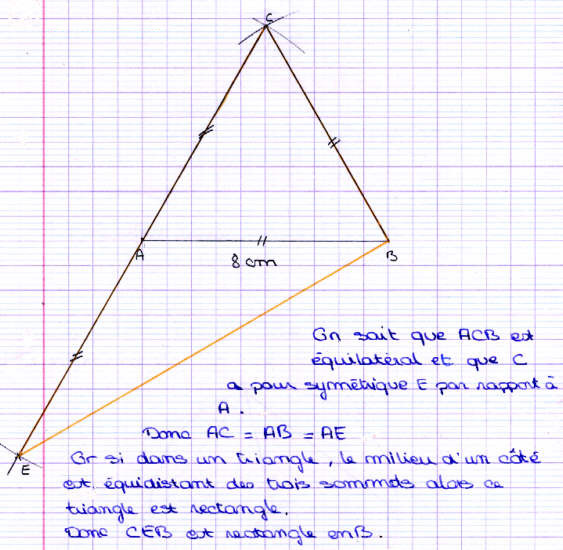 C
A
8 cm
B
On sait que ACB est
équilatéral et que C
a pour symétrique E par rapport à
A.
Donc AC = AB = AE
E
Or si dans un triangle, le milieu d'un côté
est équidistant des trois sommets alors ce
triangle est rectangle.
Donc CEB est rectangle en B.